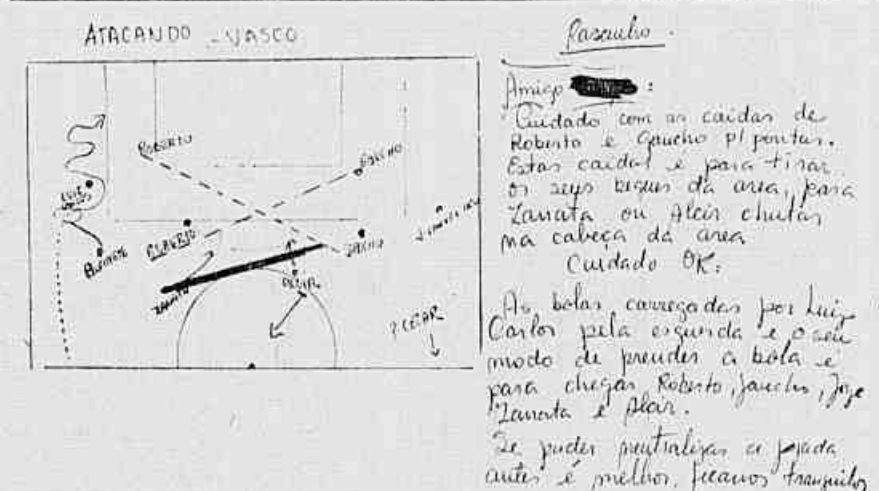 ATACANDO - VASCO
ROBERTO
GAUCHO
LUIZ CARLOS
ROBERTO
GAUCHO
ZANATA
ALCIR
P. CESAR
Rascunho.
Amigo :
Cuidado com as caidas de
Roberto e Gaucho p/ pontas.
Estas caidas é para tirar
os seus beques da area, para
Zanata ou Alcir chutar
na cabeça da area
Cuidado OK.
As bolas carregadas por Luiz
Carlos pela esquerda e o seu
modo de prender a bola é
para chegar Roberto, Gaucho, Jorge
Zanata e Alcir.
Se puder neutralizar a jogada
antes é melhor, ficamos tranquilos